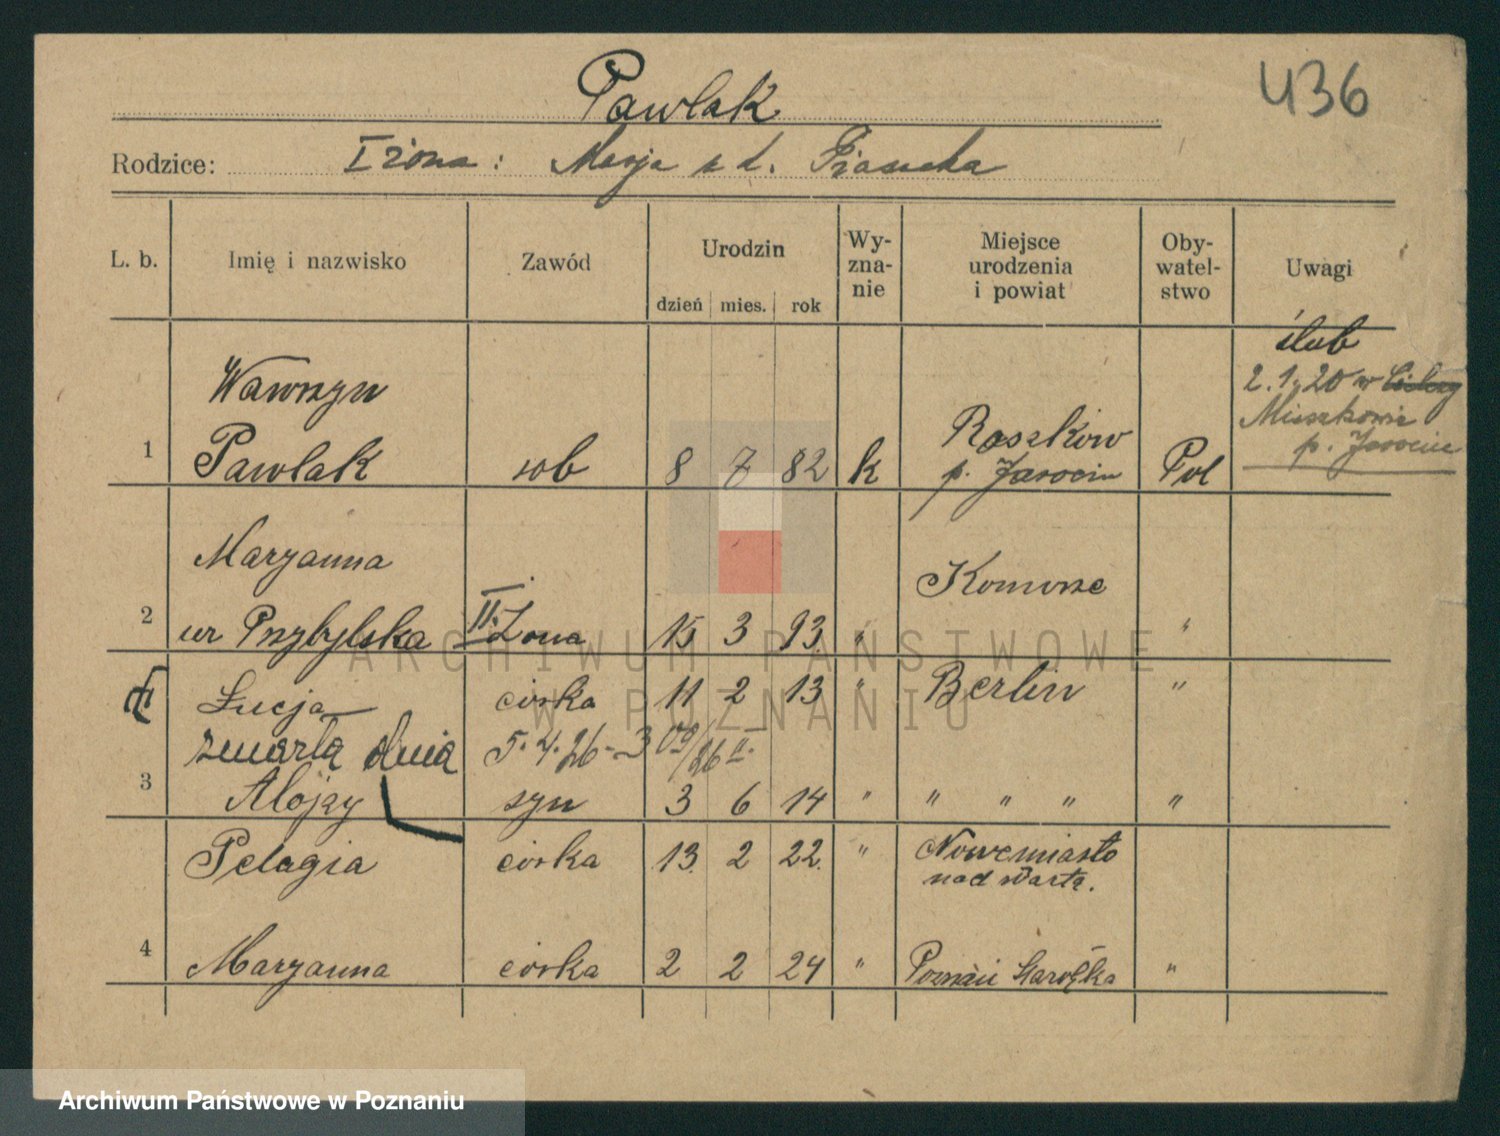 436
Pawlak
Rodzice: I żona: Marja z d.
L. b. Imię i nazwisko Zawód Urodzin dzień mies. rok Wy-zna-nie Miejsce urodzenia i powiat Oby-watel-stwo Uwagi
ślub
2.1.20 w
Mieszkowie
p. Jarocin
Wawrzyn
1 Pawlak rob 8 7 82 k Raszków p. Jarocin Pol
Maryanna Komorze
2 ur Przybylska II. Żona 15 3 93. " "
Łucja córka 11 2 13 " Berlin "
zmarła dnia 5.4.26 - 3
3 Alojzy syn 3 6 14 " " " " "
Pelagia córka 13. 2 22. " Nowemiasto
nad Wartą.
4 Maryanna córka 2 2 24 " Poznań Starołęka "
ARCHIWUM PAŃSTWOWE
W POZNANIU
Archiwum Państwowe w Poznaniu